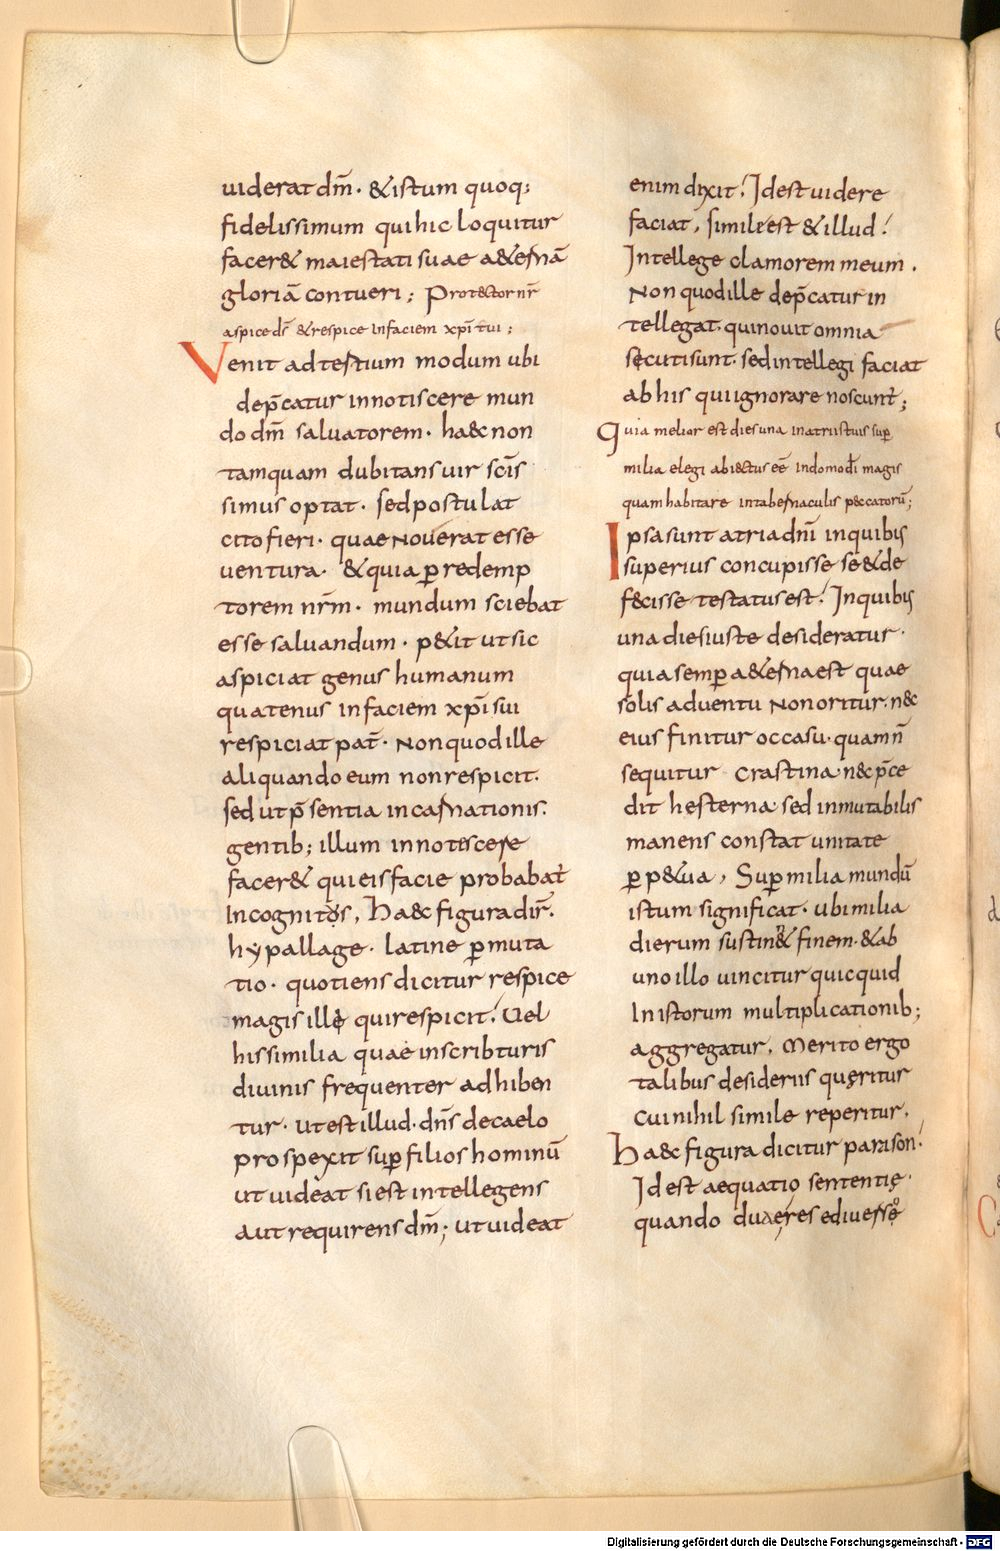 uiderat dm̄. & istum quoq;
fidelissimum qui hic loquitur
facer& maiestati suae a&ernā
gloriā contueri; Prot&tor nr̄
aspice ds̄ & respice in faciem xp̄i tui;
Venit ad tertium modum ubi
dep̄catur innotiscere mun
do dm̄ saluatorem. ha&c non
tamquam dubitans uir scīs
simus optat. sed postulat
cito fieri. quae nouerat esse
uentura. & quia p̱ redemp
torem nr̄m. mundum sciebat
esse saluandum. p&iit ut sic
aspiciat genus humanum
quatenus in faciem xp̄i sui
respiciat pat̄. Non quod ille
aliquando eum non respicit.
sed ut p̄sentia incarnationis.
gentib; illum innotescere
facer& qui eis facie probabat̄
incognitus, Ha&c figura dir̄.
hypallage. latine p̱muta
tio. quotiens dicitur respice
magis ille qui respicit! Uel
his similia quae in scribturis
diuinis frequenter adhiben
tur. ut est illud. dn̄s de caelo
prospexit sup̱ filios hominū
ut uideat si est intellegens
aut requirens dm̄; ut uideat
enim dixit! Id est uidere
faciat, simile est & illud!
Intellege clamorem meum.
Non quod ille dep̄catur in
tellegat. qui nouit omnia
secuti sunt. sed intellegi faciat
ab his qui ignorare noscunt̄;
Quia melior est dies una in atriis tuis sup̱
milia elegi abiectus eē in domo dī magis
quam habitare in tabernaculis peccatorū;
Ipsa sunt atria dn̄i in quibus
superius concupisse se & de
f&cisse testatus est! In quibus
una dies iuste desideratur.
quia semp̱ a&erna est quae
solis aduentu non oritur. n&c
eius finitur occasu. quam n̄
sequitur crastina. n&c p̄ce
dit hesterna. sed inmutabilis
manens constat unitate
p̱p&ua, Sup̱ milia mundū
istum significat. ubi milia
dierum sustin& finem. & ab
uno illo uincitur quicquid
In istorum multiplicationib;
aggregatur, Merito ergo
talibus desideriis quęritur
cui nihil simile reperitur,
Ha&c figura dicitur parison.
Id est aequatio sententię.
quando
Digitalisierung gefördert durch die Deutsche Forschungsgemeinschaft - DFG